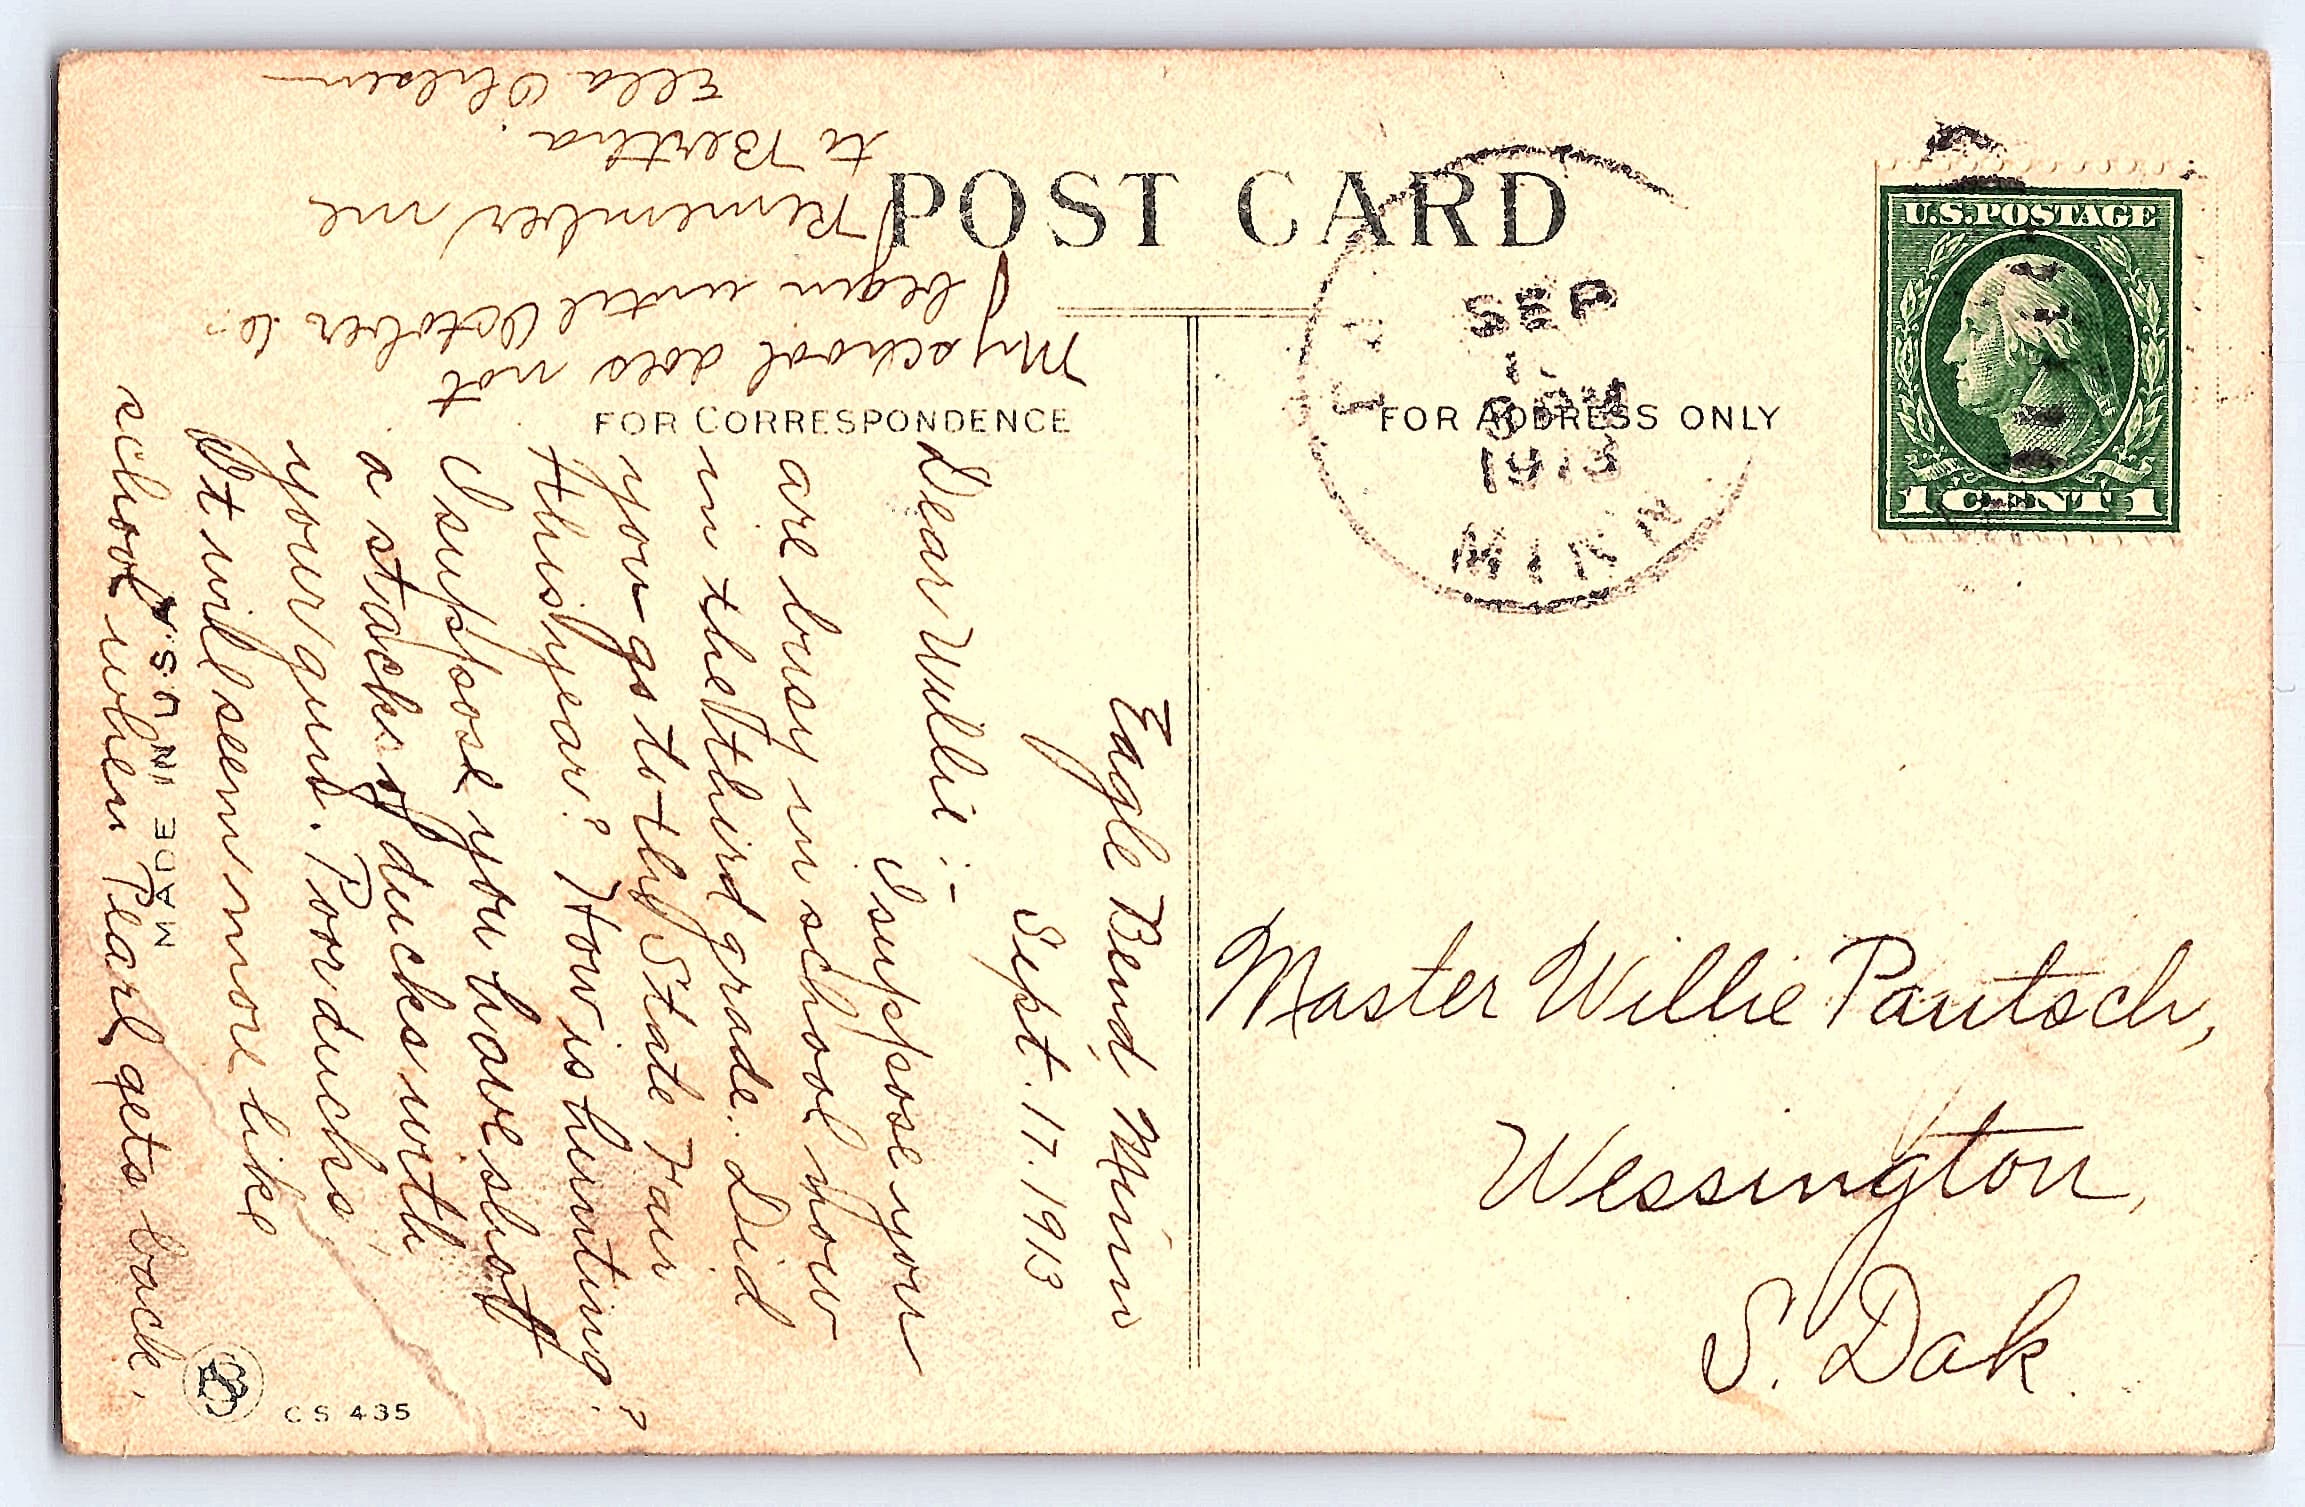 POST CARD
FOR CORRESPONDENCE
FOR ADDRESS ONLY
U.S. POSTAGE
1 CENT 1
SEP
1913
MINN
Master Willie Pautsch,
Wessington,
S. Dak.
Eagle Bend, Minn
Sept. 17. 1913
Dear Willie:-
I suppose you
are busy in school now
in the third grade. Did
you go to the State Fair
this year? How is hunting?
I suppose you have shot
a stack of ducks with
your gun. Poor ducks,
It will seem more like
school when Pearl gets back.
My school does not
begin until October 6.
Remember me
to Bertha.
Ella
MADE IN U.S.A.
CS 435